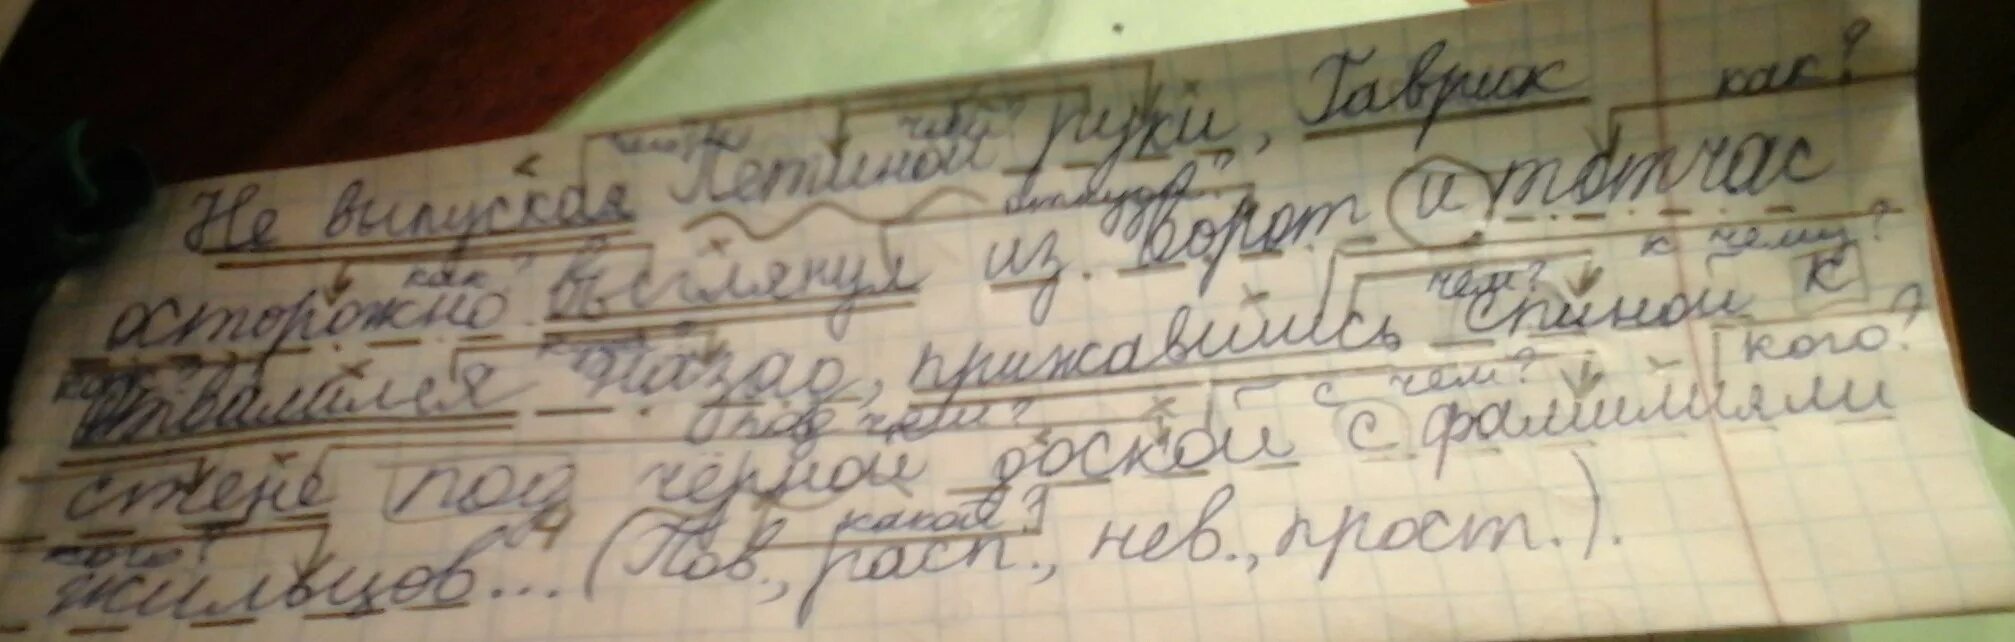 чего? чьей?
Не выпуская Петиной руки, Гаврик как?
как? откуда?
осторожно выглянул из ворот и тотчас
чем? к чему?
отвалился назад, прижавшись спиной к
под чем? с чем? кого?
стене под чёрной доской с фамилиями
какой?
жильцов... (Пов., расп., нев., прост.).